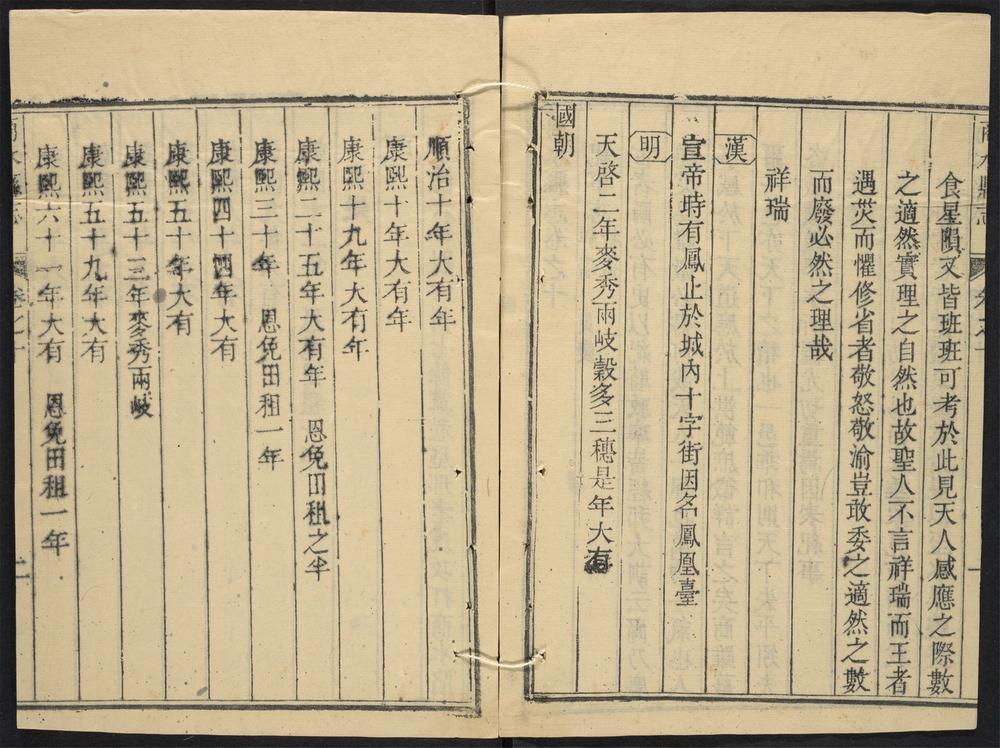 食星隕又皆班班可考於此見天人感應之際數
之適然實理之自然也故聖人不言祥瑞而王者
遇災而懼修省者敬怒敬渝豈敢委之適然之數
而廢必然之理哉
祥瑞
漢
宣帝時有鳳止於城內十字街因名鳳凰臺
明
天啓二年麥秀兩岐穀多三穗是年大有
國朝
順治十年大有年
康熙十年大有年
康熙十九年大有年
康熙二十五年大有年 恩免田租之半
康熙三十年 恩免田租一年
康熙四十四年大有
康熙五十年大有
康熙五十三年麥秀兩岐
康熙五十九年大有
康熙六十一年大有 恩免田租一年
卷之十
二